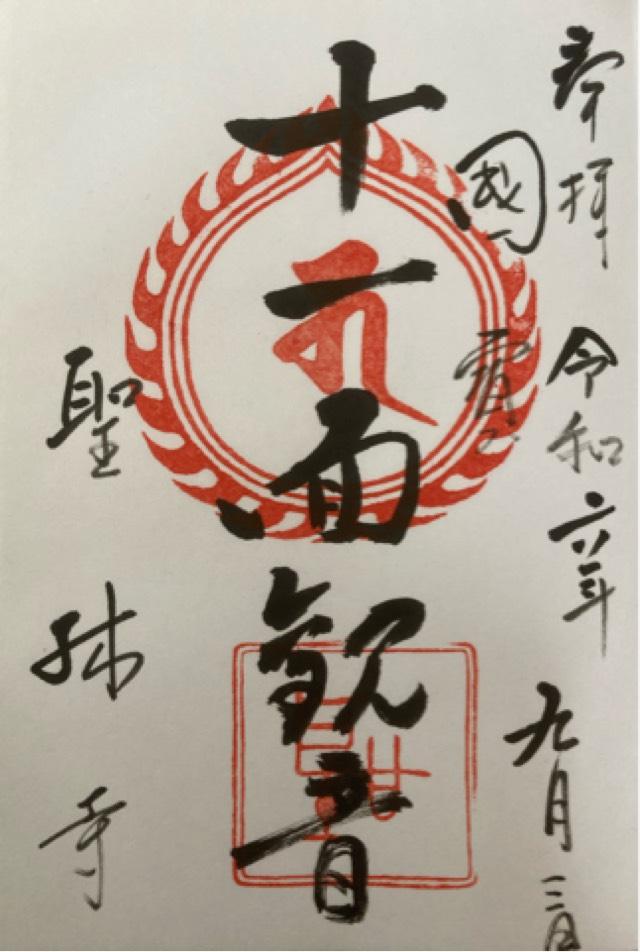 奉拝 令和六年 九月三日
國寳
十一面観音
聖林寺